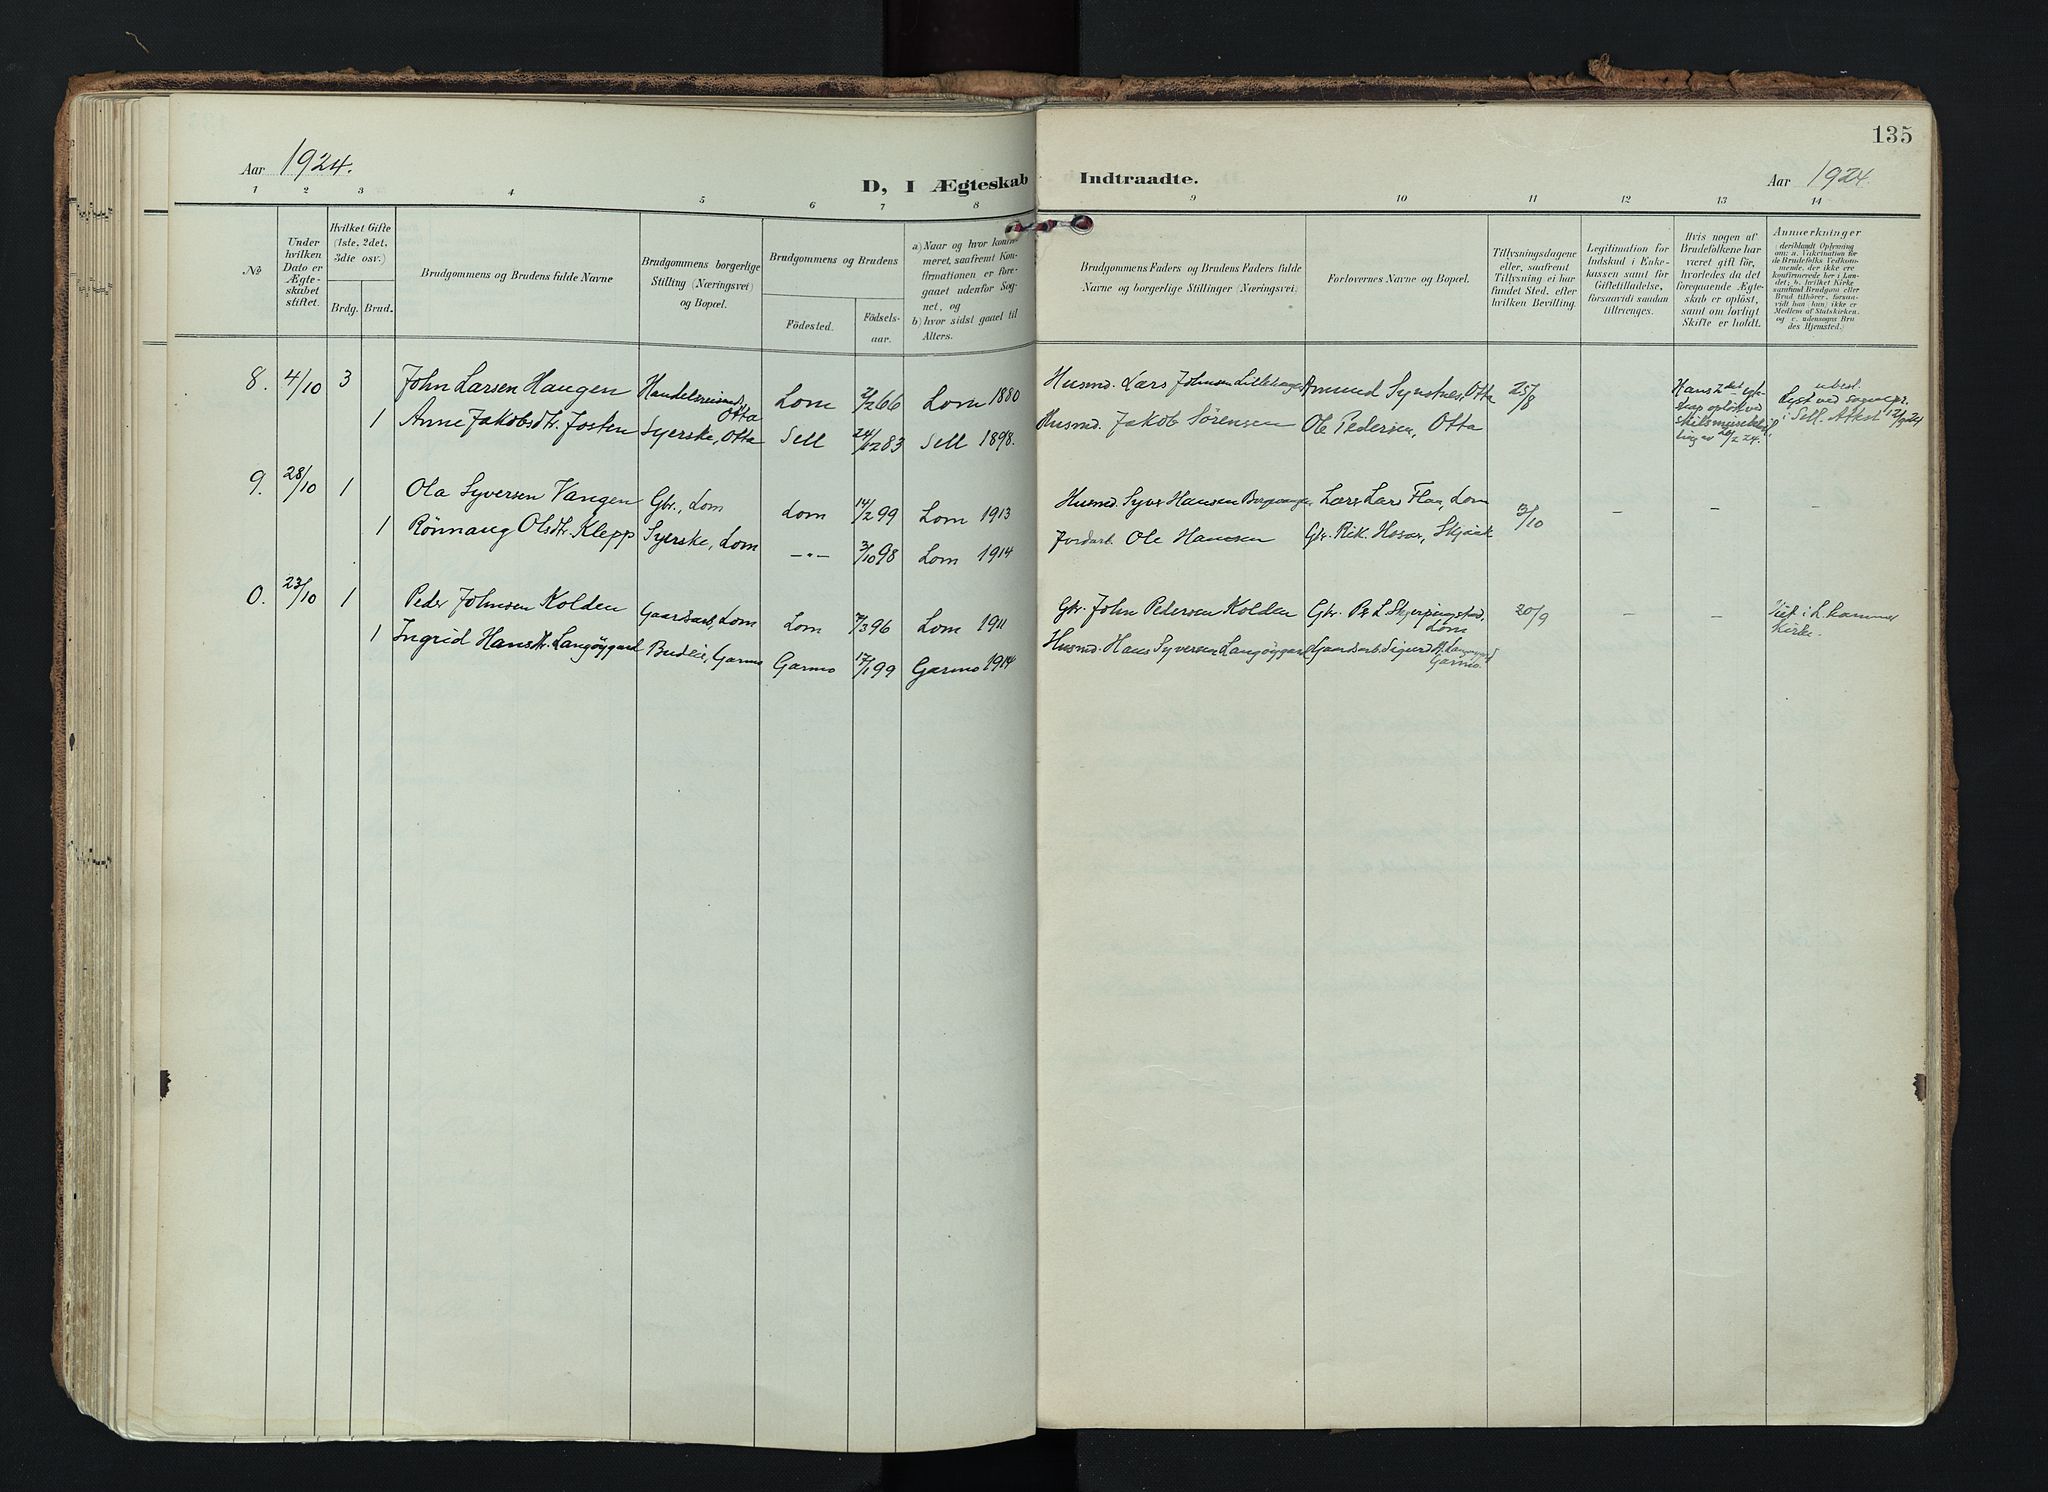 135
Aar 1924.
D, I Ægteskab Indtraadte.
Aar 1924.
1 2 3 4 5 6 7 8 9 10 11 12 13 14
№
Under hvilken Dato er Ægteskabet stiftet.
Hvilket Gifte (1ste, 2det, 3die osv.)
Brdg. Brud.
Brudgommens og Brudens fulde Navne
Brudgommens borgerlige Stilling (Næringsvei) og Bopæl.
Brudgommens og Brudens
Födested.
Födsels-aar.
a) Naar og hvor konfirmeret, saafremt Konfirmationen er foregaaet udenfor Sognet, og
b) hvor sidst gaaet til Alters.
Brudgommens Faders og Brudens Faders fulde Navne og borgerlige Stillinger (Næringsvei)
Forlovernes Navne og Bopæl.
Tillysningsdagene eller, saafremt Tillysning ei har fundet Sted, efter hvilken Bevilling.
Legitimation for Indskud i Enkekassen samt for Giftetilladelse, forsaavidt saadan tiltrænges.
Hvis nogen af Brudefolkene har været gift för, hvorledes da det foregaaende Ægteskab er oplöst, samt om lovligt Skifte er holdt.
Anmærkninger
(deriblandt Oplysning om: a. Vakcination for de Brudefolks Vedkommende, der ikke ere konfirmerede her i Landet; b. hvilket Kirkesamfund Brudgom eller Brud tilhörer, forsaavidt han (hun) ikke er Medlem af Statskirken, og c. udensogns Brudes Hjemsted.)
8. 4/10 3 John Larsen Haugen Handelsreisende, Otta Lom 2/2 66 Lom 1880 Husmd. Lars Johnsen Lillehaugen Amund Synstnes, Otta 25/8 Hans 2det Egteskap opløst ved skilsmissebevilling av 26/2 24. Lyst ved sognepr. i Sell. Attest 12/9 24
1 Anne Jakobsdtr. Josten Syerske, Otta Sell 24/12 83 Sell 1898. Husmd. Jakob Sørensen Ole Pedersen, Otta
9. 28/10 1 Ola Syversen Vangen Gbr., Lom Lom 14/2 99 Lom 1913 Husmd. Syver Hansen Lars Lars Flaa, Lom 13/10 - - -
1 Rönnaug Olsdtr. Klepp Syerske, Lom -"- 3/10 98 Lom 1914 Jordarb. Ole Hansen Gbr. Rik. Hosar, Skjaak
0. 23/10 1 Peder Johnsen Kolden Gaardsarb., Lom Lom 7/3 96 Lom 1911 Gbr. John Pedersen Kolden Gbr. P. L. Skjerpingstad, Lom 20/9 - - Viet i L.hammer Kirke.
1 Ingrid Hansdtr. Langöygard Budeie, Garmo Garmo 17/1 99 Garmo 1914 Husmd. Hans Syversen Langöygard Gaardsarb. Sigurd H. Langöygard Garmo.